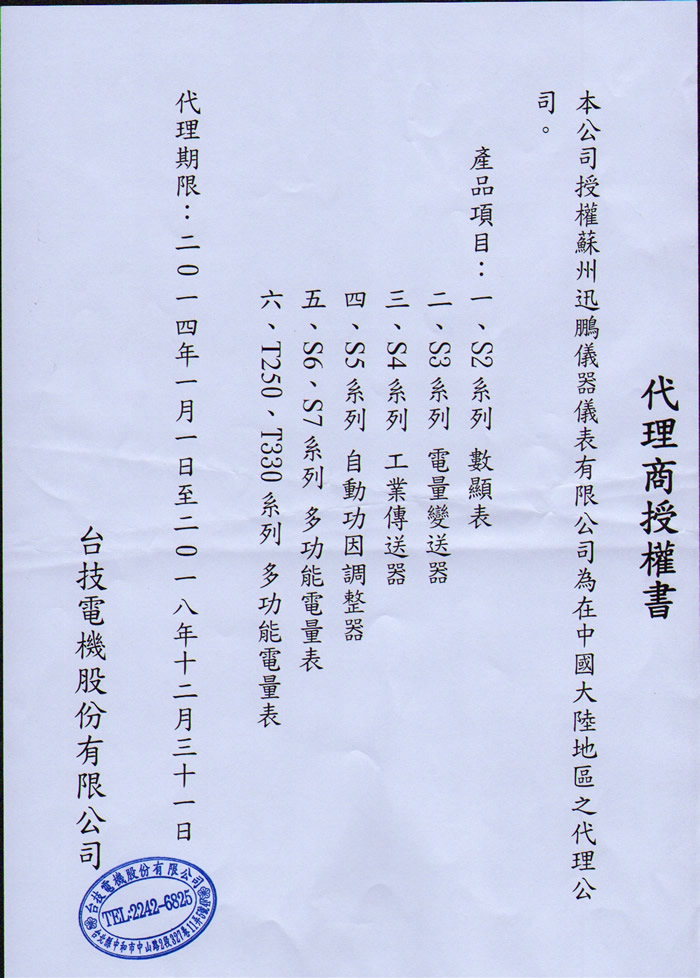 代理商授權書
本公司授權蘇州迅鵬儀器儀表有限公司為在中國大陸地區之代理公
司。
產品項目：一、S2 系列 數顯表
二、S3 系列 電量變送器
三、S4 系列 工業傳送器
四、S5 系列 自動功因調整器
五、S6、S7 系列 多功能電量表
六、T250、T330 系列 多功能電量表
代理期限：二〇一四年一月一日至二〇一八年十二月三十一日
台技電機股份有限公司
台技電機股份有限公司
TEL:2242-6825
台北縣中和市中山路2段327巷11弄5號